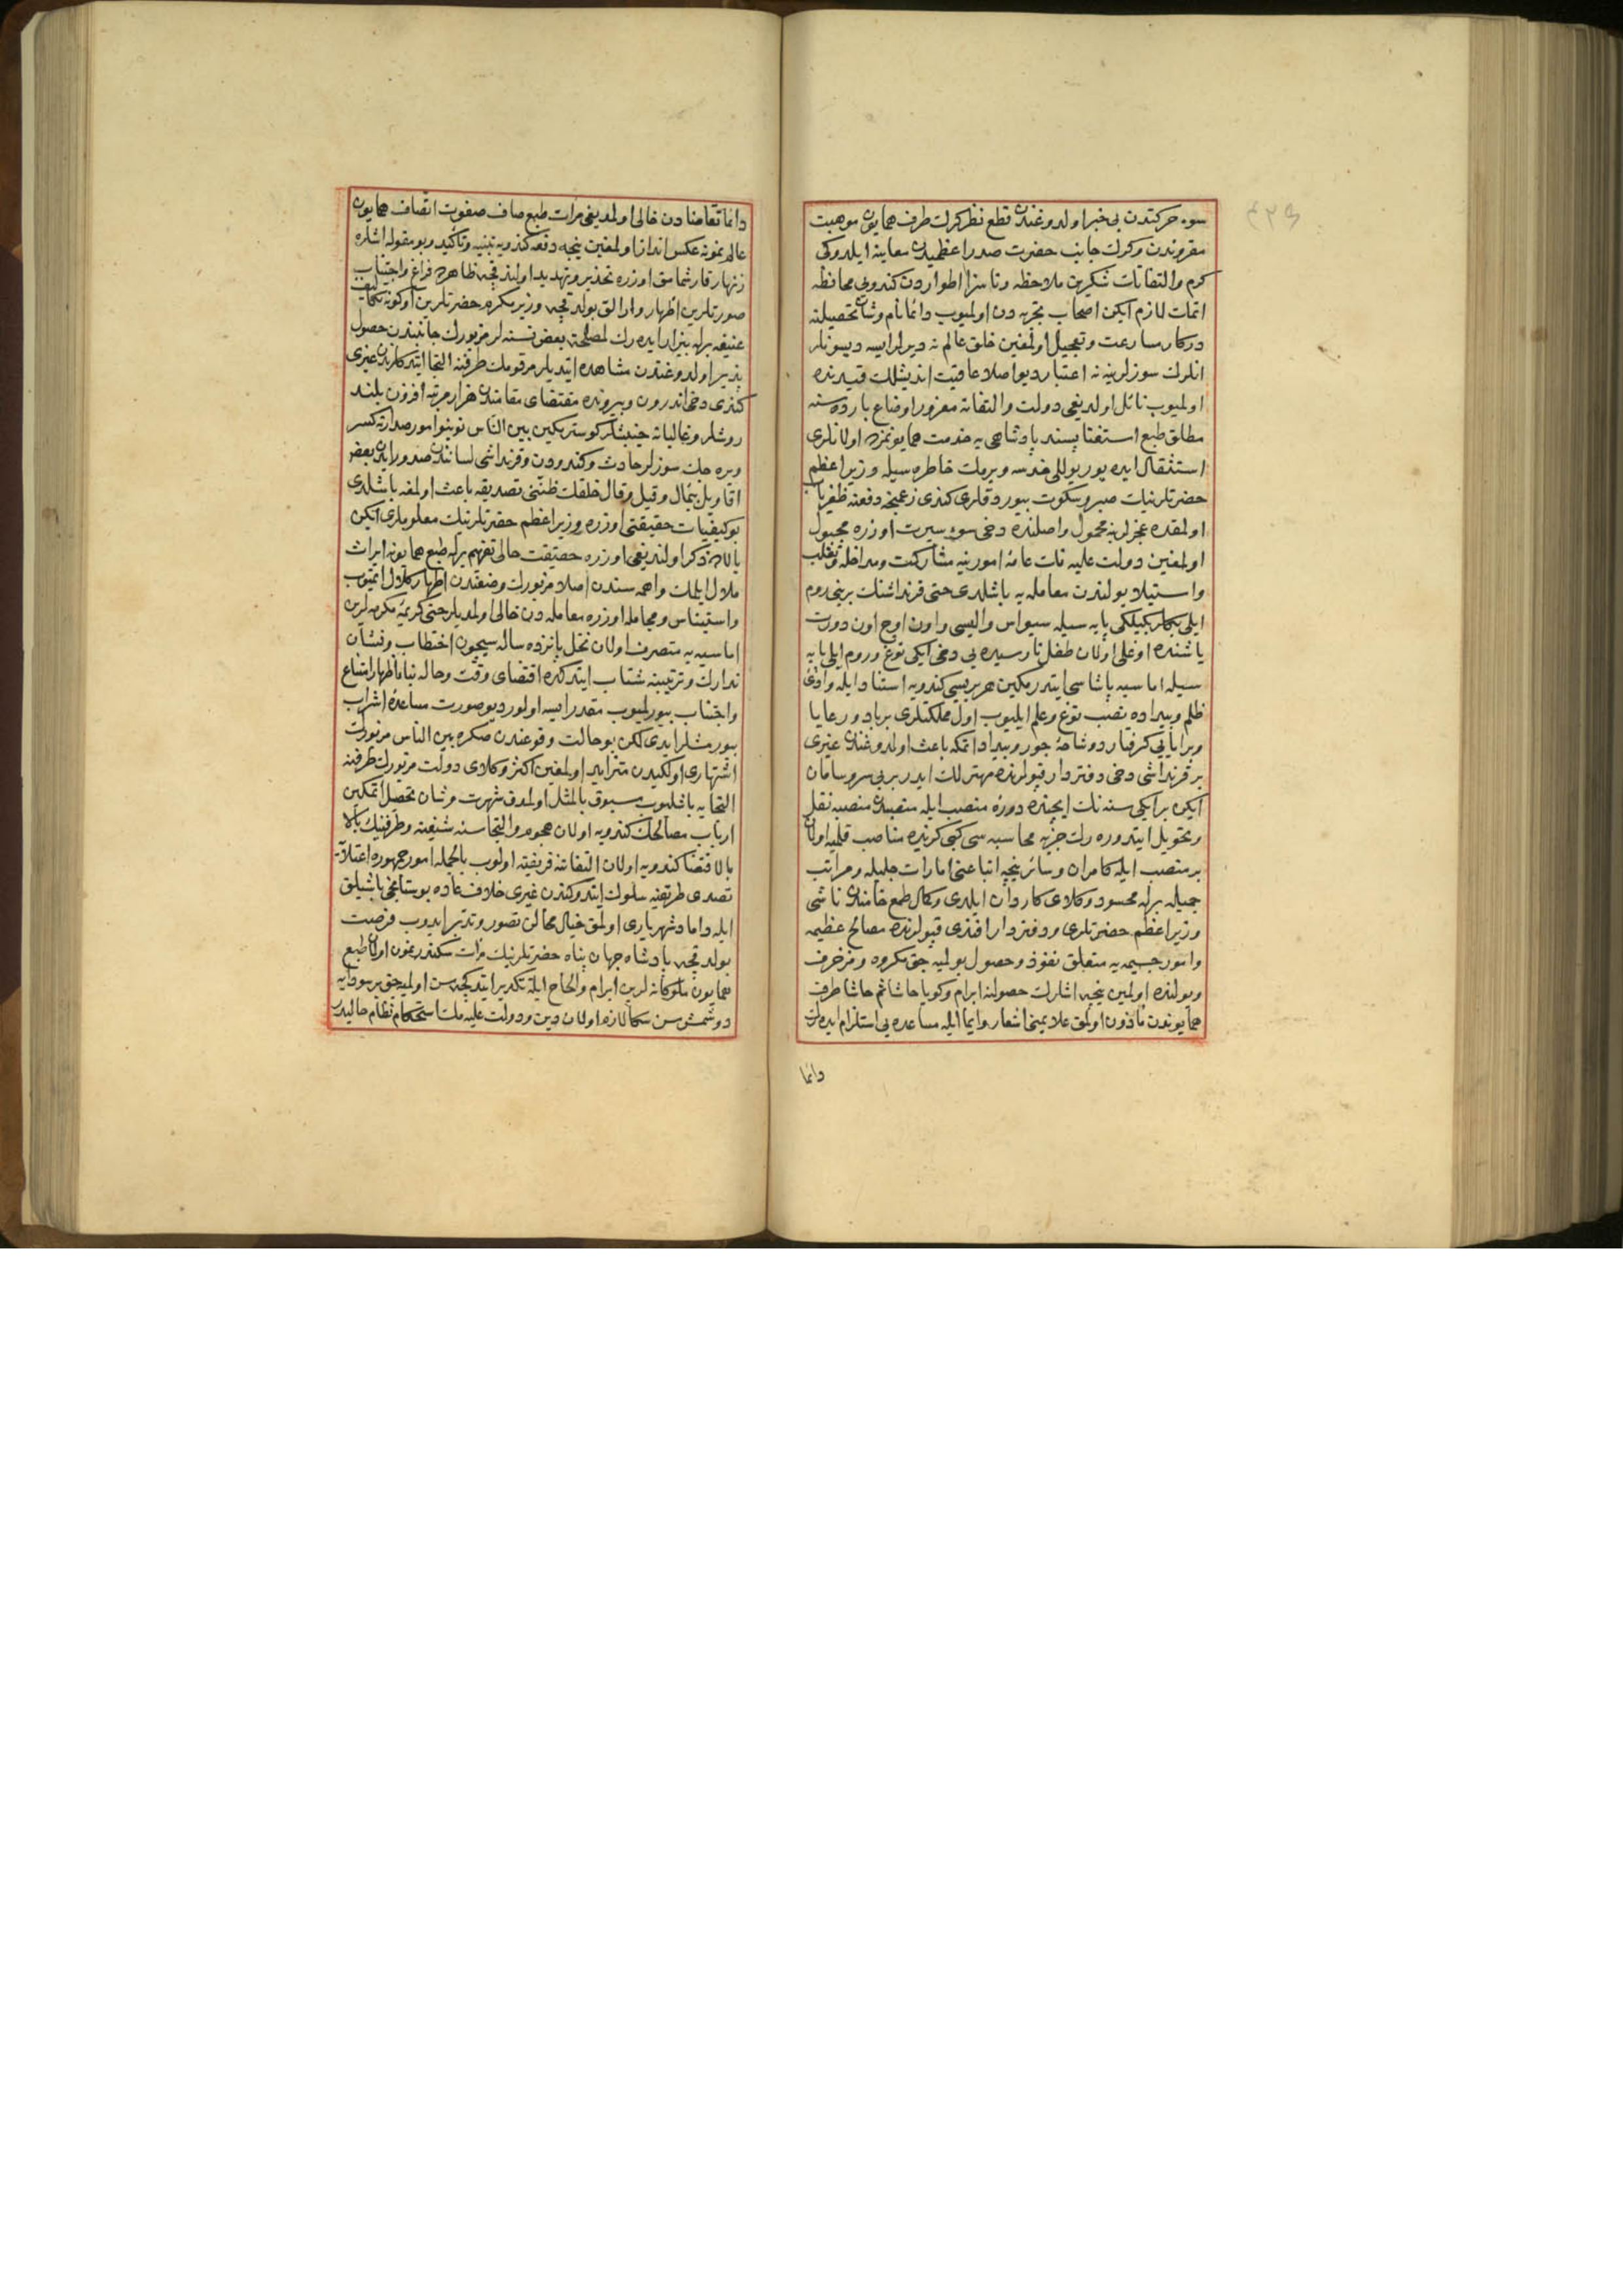 سوء حركتدن بی خبر اولدوغندن قطع نظر كرك طرف همایون موهبت
مقروندن و كرك جانب حضرت صدر اعظمیدن معاینه ایلدوكی
كرم و التفاتك شكرین ملاحظه و ناسزا اطواردن كندویی محافظه
اتمك لازم ایكن اصحاب تجربه دن اولمیوب دائما نام و شان تحصیلنه
دركار مسارعت و تعجیل اولمغین خلق عالم نه دیرلر ایسه دیسونلر
انلرك سوزلرینه نه اعتبار دیو اصلا عاقبت اندیشلك قیدنده
اولمیوب نائل اولدیغی دولت و التفاته مغرور اوضاع بارده سنه
مطلق طبع استغنا پسند پادشاهی یه خدمت همایونمزده اولانلری
استثقال ایده یور یوللی خدسه ویرمك خاطره سیله وزیر اعظم
حضرتلرینك صبر و سكوت بیوردقلری كندی زعمنجه دفعنه ظفریاب
اولمقده عجزلرینه محمول و اصلنده دخی سوء سیرت اوزره مجبول
اولمغین دولت علیه نك عامه امورینه مشاركت و مداخله و تغلب
و استیلا یولندن معامله یه باشلدی حتی قرنداشنك برینی روم
ایلی بكلربكیلكی پایه سیله سیواس والیسی و اون اوچ اون درت
یاشنده اوغلی اولان طفل نارسیده یی دخی ایكی توغ و روم ایلی پایه
سیله اماسیه پاشاسی ایتدرمكین هر بریسی كندویه استناد ایله وادئ
ظلم و بیداده نصب توغ و علم ایلیوب اول مملكتلری برباد و رعایا
و برایایی گرفتار دوشاخهٔ جور و بیداد اتمكه باعث اولدوغندن غیری
بر قرنداشی دخی دفتردار قپولرنده مهترلك ایدر بر بی سر و سامان
ایكن بر ایكی سنه نك ایچنده دوزه منصب ایله منصبدن منصبه نقل
و تحویل ایتدوره رك جزیه محاسبه سی كبی كزیده مناصب قلمیه اولان
بر منصب ایله كامران و سائر نیجه اتباعنی امارات جلیله و مراتب
جمیله برله محسود وكلای كاردان ایلدی و كمال طمع خامندن ناشی
وزیر اعظم حضرتلری و دفتردار افندی قپولرنده مصالح عظیمه
و امور جسیمه یه متعلق نفوذ و حصول بولمیه جق مكروه و مزخرف
و یولنده اولمین نیجه اشارك حصولنه ابرام و كویا حاشا ثم حاشا طرف
همایوندن مأذون اولمق علایمنی اشعار و ایما ایله مساعده یی استلزام ایده رك
دائما
دائما تقاضادن خالی اولمدیغی مرات طبع صاف صفوت اتصاف همایون
عالم نمونه عكس انداز اولمغین نیجه دفعه كندویه تنبیه و تأكید و بو مقوله اشلره
زنهار قارشمامق اوزره تحذیر و تهدید اولندقجه ظاهرده فراغ و اجتناب
صورتلرین اظهار و ارالق بولدقجه وزیر مكرم حضرتلرین اوكونه تكالیف
عنیفه برله بیزار ایده رك لمصلحة بعض نسنه لر مزبورك جانبندن حصول
پذیر اولدوغندن مشاهده ایتدیلر مرقومك طرفنه التجا ایتدكلرندن غیری
كندی دخی اندرون و بیرونده مقتضای مقامندن هزار مرتبه افزون بلند
روشلر و غالبانه جنبشلر كوسترمكین بین الناس نوبنو امور صدارته كسر
ویره جك سوزلر حادث و كندودن و قرنداشی لسانندن صدور ایدن بعض
اقاویل بیمال و قیل و قال خلقك ظننی تصدیقه باعث اولمغه باشلدی
بو كیفیات حقیقتی اوزره وزیر اعظم حضرتلرینك معلوملری ایكن
بالاده ذكر اولندیغی اوزره حقیقت حالی تفهیم برله طبع همایونه ایراث
ملال ایلمك واهمه سندن اصلا مزبورك وضعندن اظهار ملال ایتمیوب
و استیناس و مجامله اوزره معامله دن خالی اولمدیلر حتی كریمهٔ مكرمه لرین
اماسیه یه متصرف اولان نخل پانزده ساله سیچون اختطاب و نشان
تدارك و ترتیبنه شتاب ایتدكده اقتضای وقت و حاله بناء اظهار امتناع
و اجتناب بیورلمیوب مقدر ایسه اولور دیو صورت مساعده اشراب
بیورمشلر ایدی لكن بو حالت وقوعندن صكره بین الناس مزبورك
اشتهاری اولكیدن متزاید اولمغین اكثر وكلای دولت مزبورك طرفنه
التجایه باشلیوب مسبوق بالمثل اولمدق شهرت و شان تحصیل اتمكین
ارباب مصالحك كندویه اولان هجوم و التجاسنه شیفته و طرفینك بالا
بالاقتضا كندویه اولان التفاتنه فریفته اولوب بالجمله امور جمهوره اعتلاء
تصدی طریقنه سلوك ایتدوكندن غیری خلاف عاده بوستانجی باشیلق
ایله داماد شهریاری اولمق خیال محالن تصور و تدبیر ایدوب فرصت
بولدقجه پادشاه جهان پناه حضرتلرینك مرات سكندر نمون اولان طبع
همایون ملوكانه لرین ابرام و الحاح ایله تكدیر ایتدكجه سن اولمیه جق بر سودایه
دوشمش سن سكا لازم اولان دین و دولت علیه مك استحكام نظام حالیدر